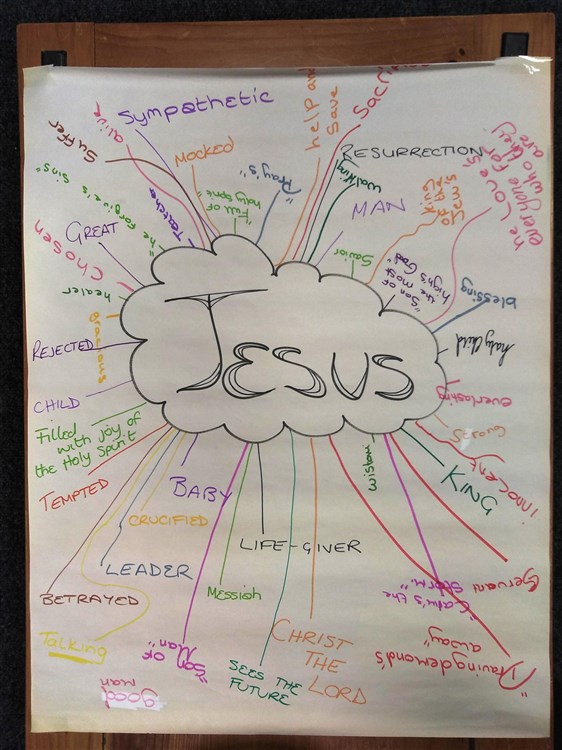 JESUS
Sympathetic
help and
save
alive
Suffer
MOCKED
RESURRECTION
walking
he LOVE'S
everyone for
who they
are
"Full of
holy spirit"
"Pray's"
MAN
"he forgive's sins"
Teacher
GREAT
Savior
"Son of
the most
high's God"
Chosen
healer
blessing
gracious
REJECTED
holy child
CHILD
everlasting
Filled
with joy of
the Holy Spirit
INNOCENT
wisdom
KING
TEMPTED
BABY
CRUCIFIED
LIFE-GIVER
LEADER
Servant
"Calm's the
Storm"
BETRAYED
Messiah
Talking
"Son of
Man"
CHRIST
THE
LORD
SEES THE
FUTURE
"Draving demond's
away"
good
man